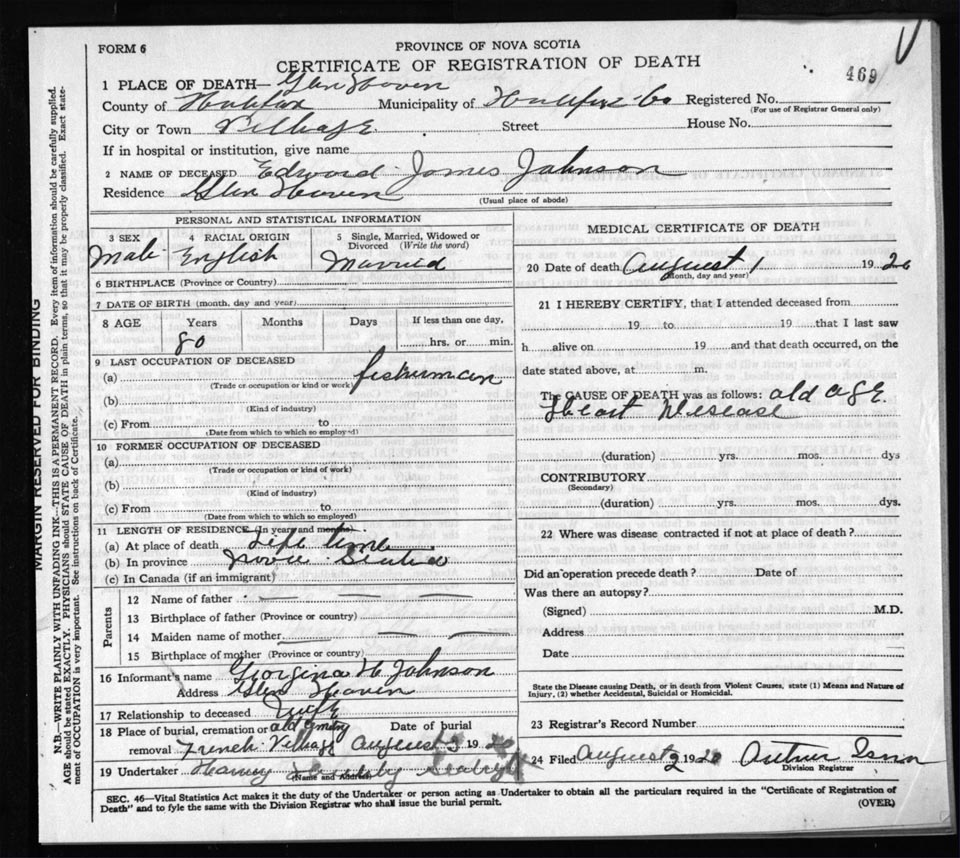 FORM 6
PROVINCE OF NOVA SCOTIA
CERTIFICATE OF REGISTRATION OF DEATH
469
1 PLACE OF DEATH— Glen Haven
County of Halifax Municipality of Halifax Co Registered No.
(For use of Registrar General only)
City or Town Village Street House No.
If in hospital or institution, give name
2 NAME OF DECEASED Edward James Johnson
Residence Glen Haven
(Usual place of abode)
PERSONAL AND STATISTICAL INFORMATION
3 SEX 4 RACIAL ORIGIN 5 Single, Married, Widowed or Divorced (Write the word)
Male English Married
6 BIRTHPLACE (Province or Country)
7 DATE OF BIRTH (month, day and year)
8 AGE Years Months Days If less than one day,
80 hrs. or min.
9 LAST OCCUPATION OF DECEASED
(a) fisherman
(Trade or occupation or kind or work)
(b)
(Kind of industry)
(c) From to
(Date from which to which so employed)
10 FORMER OCCUPATION OF DECEASED
(a)
(Trade or occupation or kind of work)
(b)
(Kind of industry)
(c) From to
(Date from which to which so employed)
11 LENGTH OF RESIDENCE (In years and months).
(a) At place of death Life time
(b) In province Nova Scotia
(c) In Canada (if an immigrant)
Parents
12 Name of father
13 Birthplace of father (Province or country)
14 Maiden name of mother
15 Birthplace of mother (Province or country)
16 Informant's name Georgina H. Johnson
Address Glen Haven
17 Relationship to deceased Wife
18 Place of burial, cremation or removal Date of burial
French Village August 3 19
19 Undertaker Harry
(Name and Address)
MEDICAL CERTIFICATE OF DEATH
20 Date of death August 1 19 26
(Month, day and year)
21 I HEREBY CERTIFY, that I attended deceased from
19 to 19 that I last saw
h alive on 19 and that death occurred, on the
date stated above, at m.
The CAUSE OF DEATH was as follows: old age.
Heart Disease
(duration) yrs. mos. dys
CONTRIBUTORY
(Secondary)
(duration) yrs. mos. dys.
22 Where was disease contracted if not at place of death?
Did an operation precede death? Date of
Was there an autopsy?
(Signed) M.D.
Address
Date
State the Disease causing Death, or in death from Violent Causes, state (1) Means and Nature of Injury, (2) whether Accidental, Suicidal or Homicidal.
23 Registrar's Record Number
24 Filed August 2 19
Division Registrar
SEC. 46—Vital Statistics Act makes it the duty of the Undertaker or person acting as Undertaker to obtain all the particulars required in the "Certificate of Registration of
Death" and to fyle the same with the Division Registrar who shall issue the burial permit. (OVER)
MARGIN RESERVED FOR BINDING
N.B.—WRITE PLAINLY WITH UNFADING INK—THIS IS A PERMANENT RECORD. Every item of information should be carefully supplied.
AGE should be stated EXACTLY. PHYSICIANS should STATE CAUSE OF DEATH in plain terms, so that it may be properly classified. Exact state-
ment of OCCUPATION is very important. See instructions on back of Certificate.